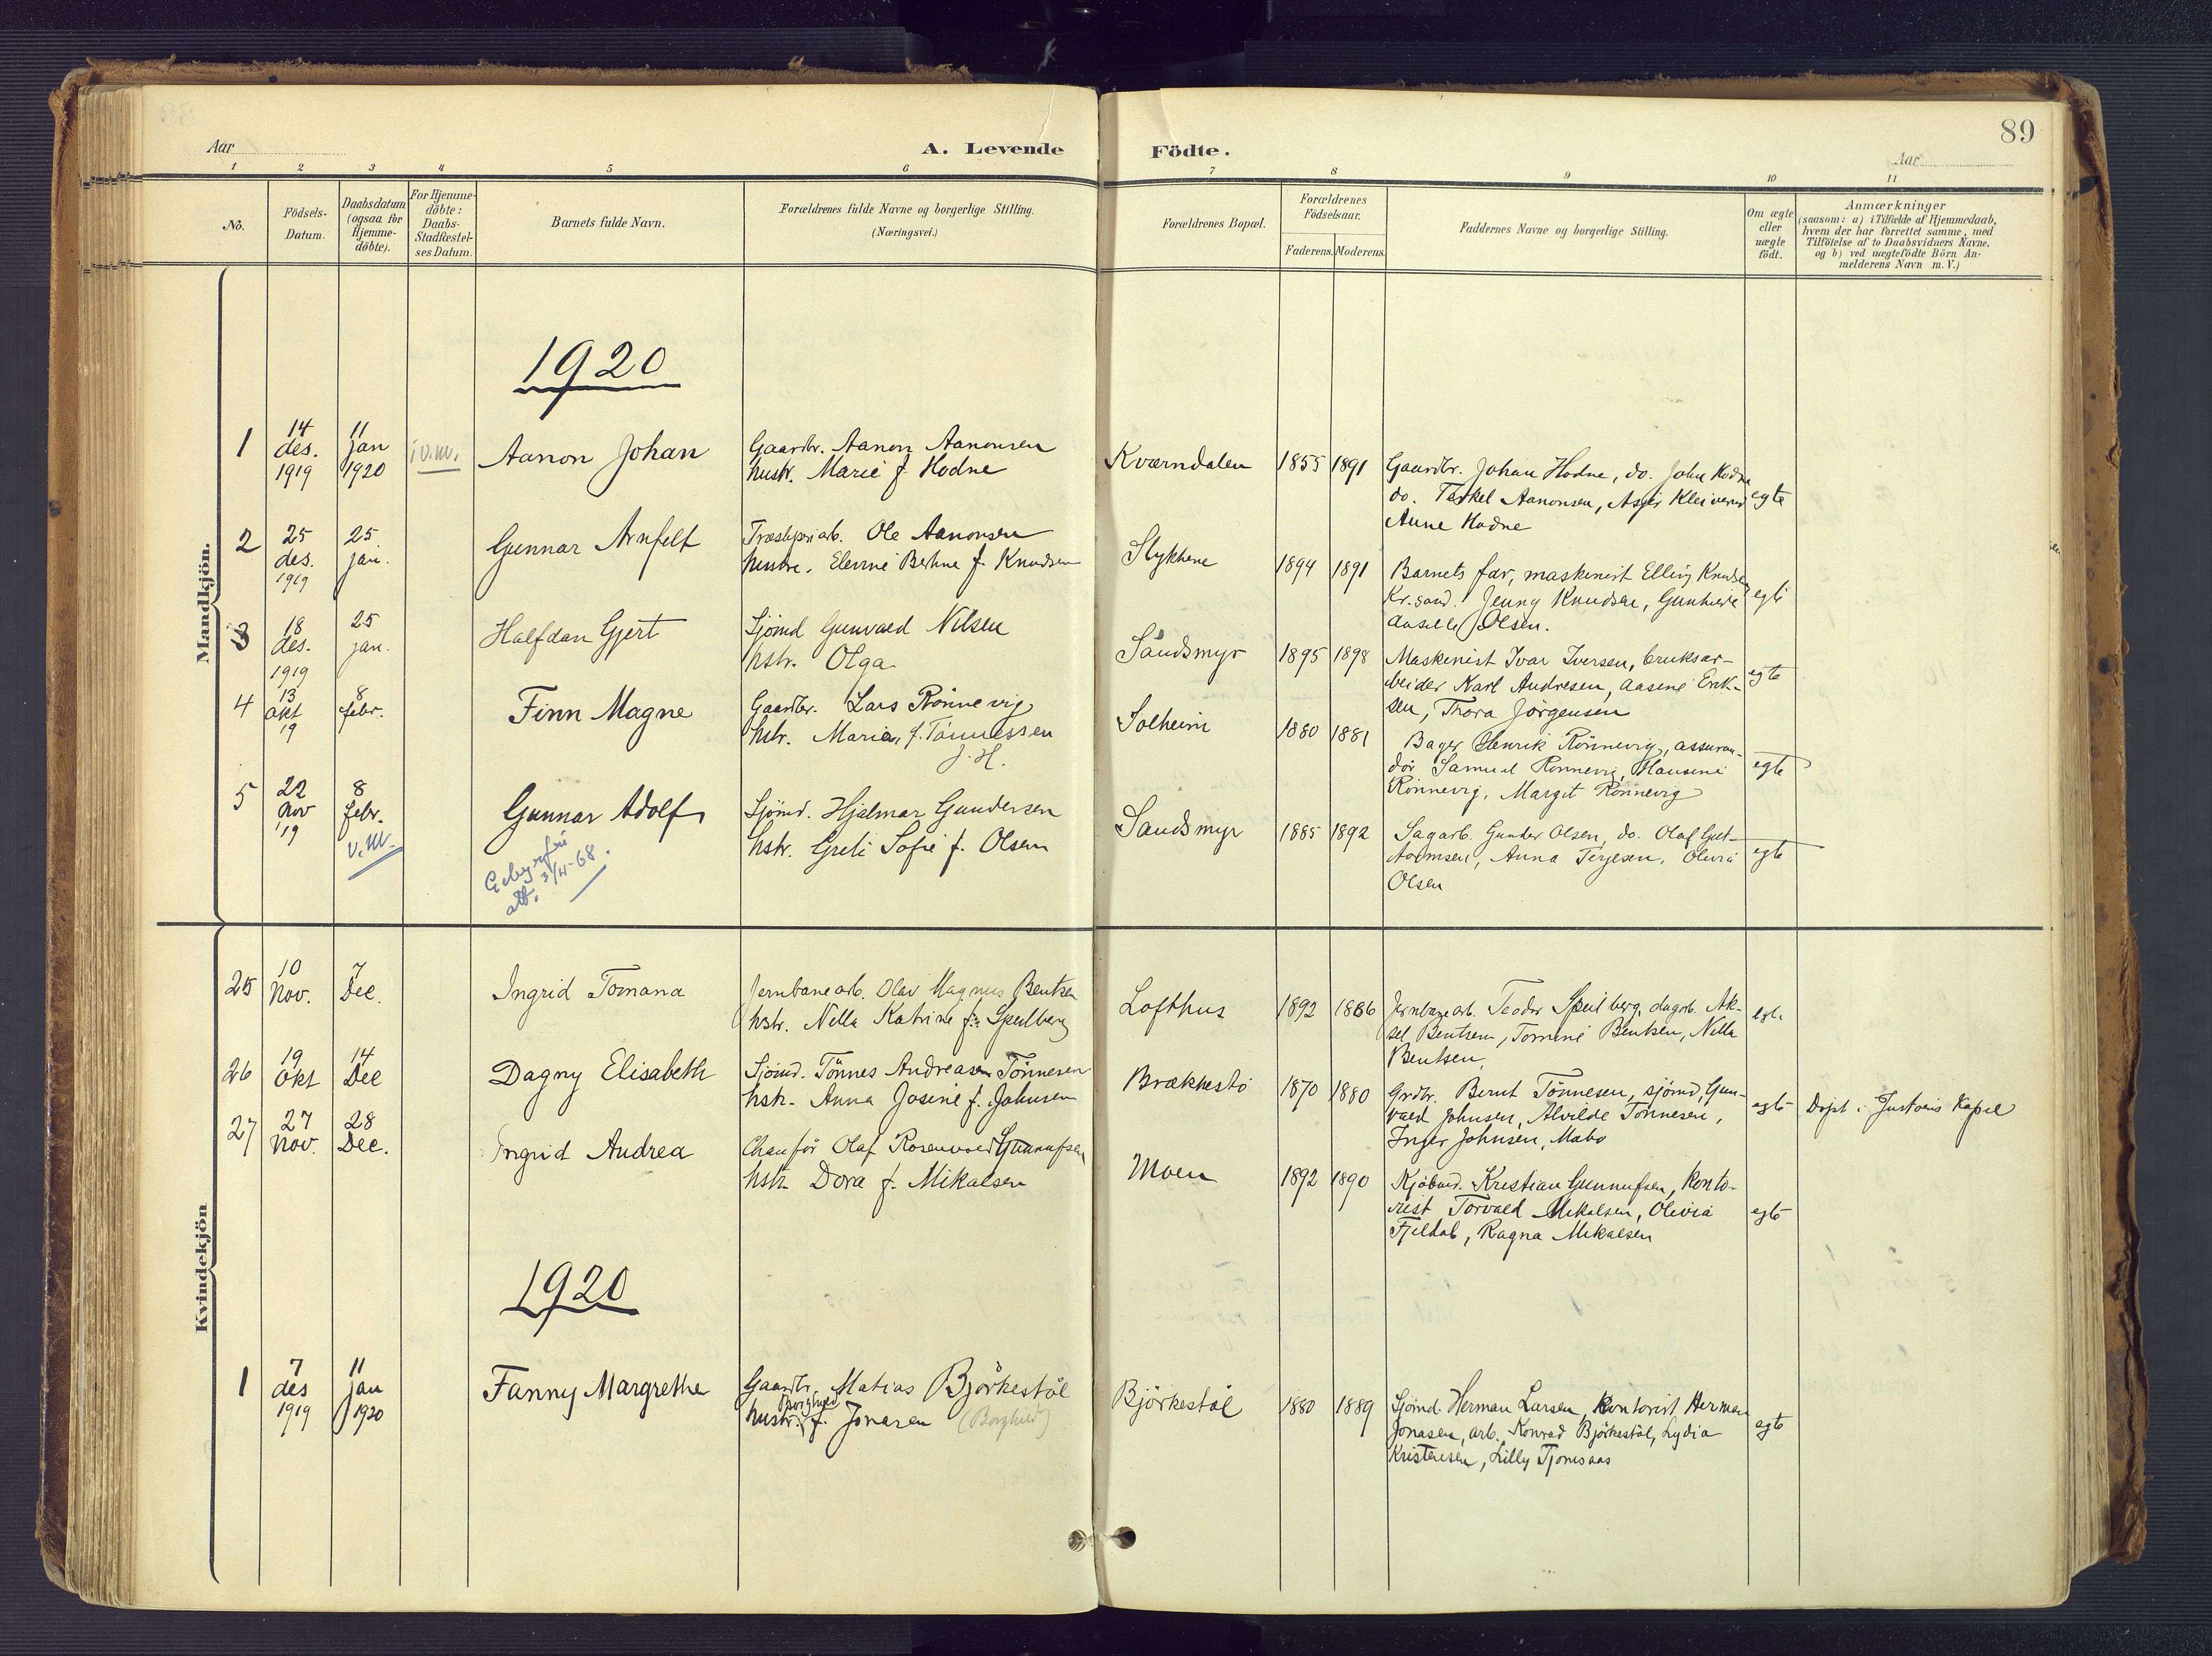 89
Aar
A. Levende Födte.
Aar
1 2 3 4 5 6 7 8 9 10 11
No.
Födsels-
Datum.
Daabsdatum
(ogsaa for
Hjemme-
döbte).
For Hjemme-
döbte:
Daabs-
Stadfæstel-
ses Datum.
Barnets fulde Navn.
Forældrenes fulde Navne og borgerlige Stilling.
(Næringsvei.)
Forældrenes Bopæl.
Forældrenes
Födselsaar.
Faderens. Moderens.
Faddernes Navne og borgerlige Stilling.
Om ægte
eller
uægte
födt.
Anmærkninger
(saasom: a) i Tilfælde af Hjemmedaab,
hvem der har forrettet samme, med
Tilföielse af to Daabsvidners Navne.
og b) ved uægtefödte Börn An-
melderens Navn m. V.)
Mandkjön.
1920
1
14
des.
1919
11
jan
1920
i v.m.
Aanon Johan
Gaardbr. Aanon Aanonsen
hustr. Marie f. Hodne
Kværndalen
1855 1891
Gaardbr. Johan Hodne, do. John Hodne
do. Terkel Aanonsen, Kleivene
Anne Hodne
egte
2
25
des.
1919
25
jan.
Gunnar Arnfelt
Ole Aanonsen
hustru. Elevine f. Knudsen
Stykkene
1894 1891
Barnets far, maskinist Elling Knudsen
Kr.sand. Jenny Knudsen,
Olsen.
egte
3
18
des.
1919
25
jan.
Halfdan Gjert
Sjömd Gunvald Nilsen
hstr. Olga
Sandsmyr
1895 1898
Maskinist Ivar Iversen, bruksar-
beider Karl Andresen, Aasene Erik-
sen, Thora Jörgensen
egte
4
13
okt
19
8
febr.
Finn Magne
Gaardbr. Lars Rönnevig
hstr. Maria, f. Tönnessen
J. H.
Solheim
1880 1881
Bager Henrik Rönnevig, assuran-
dör Samuel Rönnevig, Hansine
Rönnevig, Margit Rönnevig
egte
5
22
nov
'19
8
febr.
v.m.
Gunnar Adolf
att. 3/4-68.
Sjömd. Hjalmar Gundersen
hstr. Greti Sofie f. Olsen
Sandsmyr
1885 1892
Sagarb. Gunder Olsen, do. Olaf Gut-
tormsen, Anna Terjesen, Olivia
Olsen
egte
Kvindekjön
25
10
Nov.
7
Dec.
Ingrid Tomana
Jernbanearb. Olav Magnus Bentsen
hstr. Nella Katrine f. Speilberg
Lofthus
1892 1886
Jernbanearb. Teodor Speilberg, dagarb. Ak-
sel Bentsen, Tomine Bentsen, Nella
Bentsen
egte
26
19
Okt
14
Dec
Dagny Elisabeth
Sjömd. Tönnes Andreasen Tönnesen
hstr. Anna Josine f. Johnsen
Brækkestö
1870 1880
Grdbr. Bernt Tönnesen, sjömd. Gun-
vald Johnsen, Alvilde Tönnesen,
Inger Johnsen, Mabo
egte
Döpt i Justöens Kapel
27
27
Nov.
28
Dec.
Ingrid Andrea
Chauför Olaf Rosenvold Gunnufsen
hstr. Dora f. Mikaelsen
Moen
1892 1890
Kjöbmd. Kristian Gunnufsen, konto-
rist Torvald Mikalsen, Olivia
Fjeldal, Ragna Mikalsen
egte
1920
1
7
des
1919
11
jan
1920
Fanny Margrethe
Gaardbr. Matias Björkestöl
Borghild
hustr. f. Jonasen (Borghild)
Björkestöl
1880 1889
Sjömd Herman Larsen, kontorist Herman
Jonasen, arb. Konrad Björkestöl, Lydia
Kristensen, Lilly Tjomsaas
egte